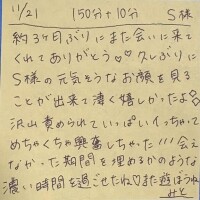 11/21 150分+10分 S様
約3ヶ月ぶりにまた会いに来て
くれてありがとう♡♡久しぶりに
S様の元気そうなお顔を見る
ことが出来て凄く嬉しかったよ
沢山責められていっぱいイっちゃって
めちゃくちゃ興奮しちゃった///会え
なかった期間を埋めるかのような
濃い時間を過ごせたね♡また遊ぼうね
みと